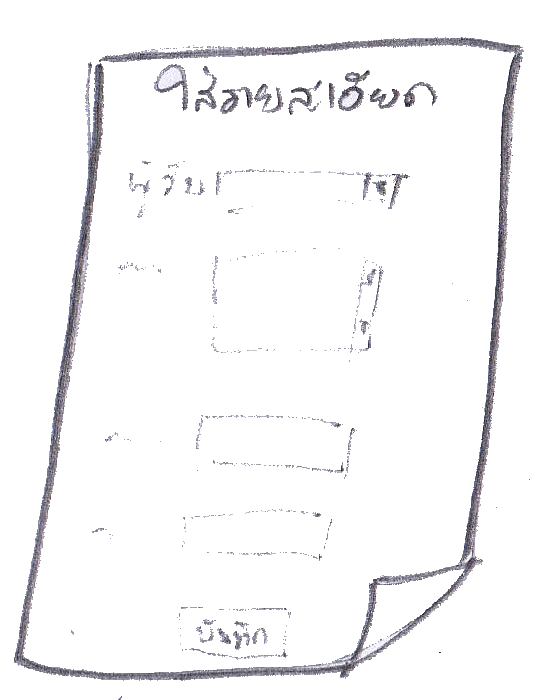 ใส่รายละเอียด
ผู้รับ
บันทึก